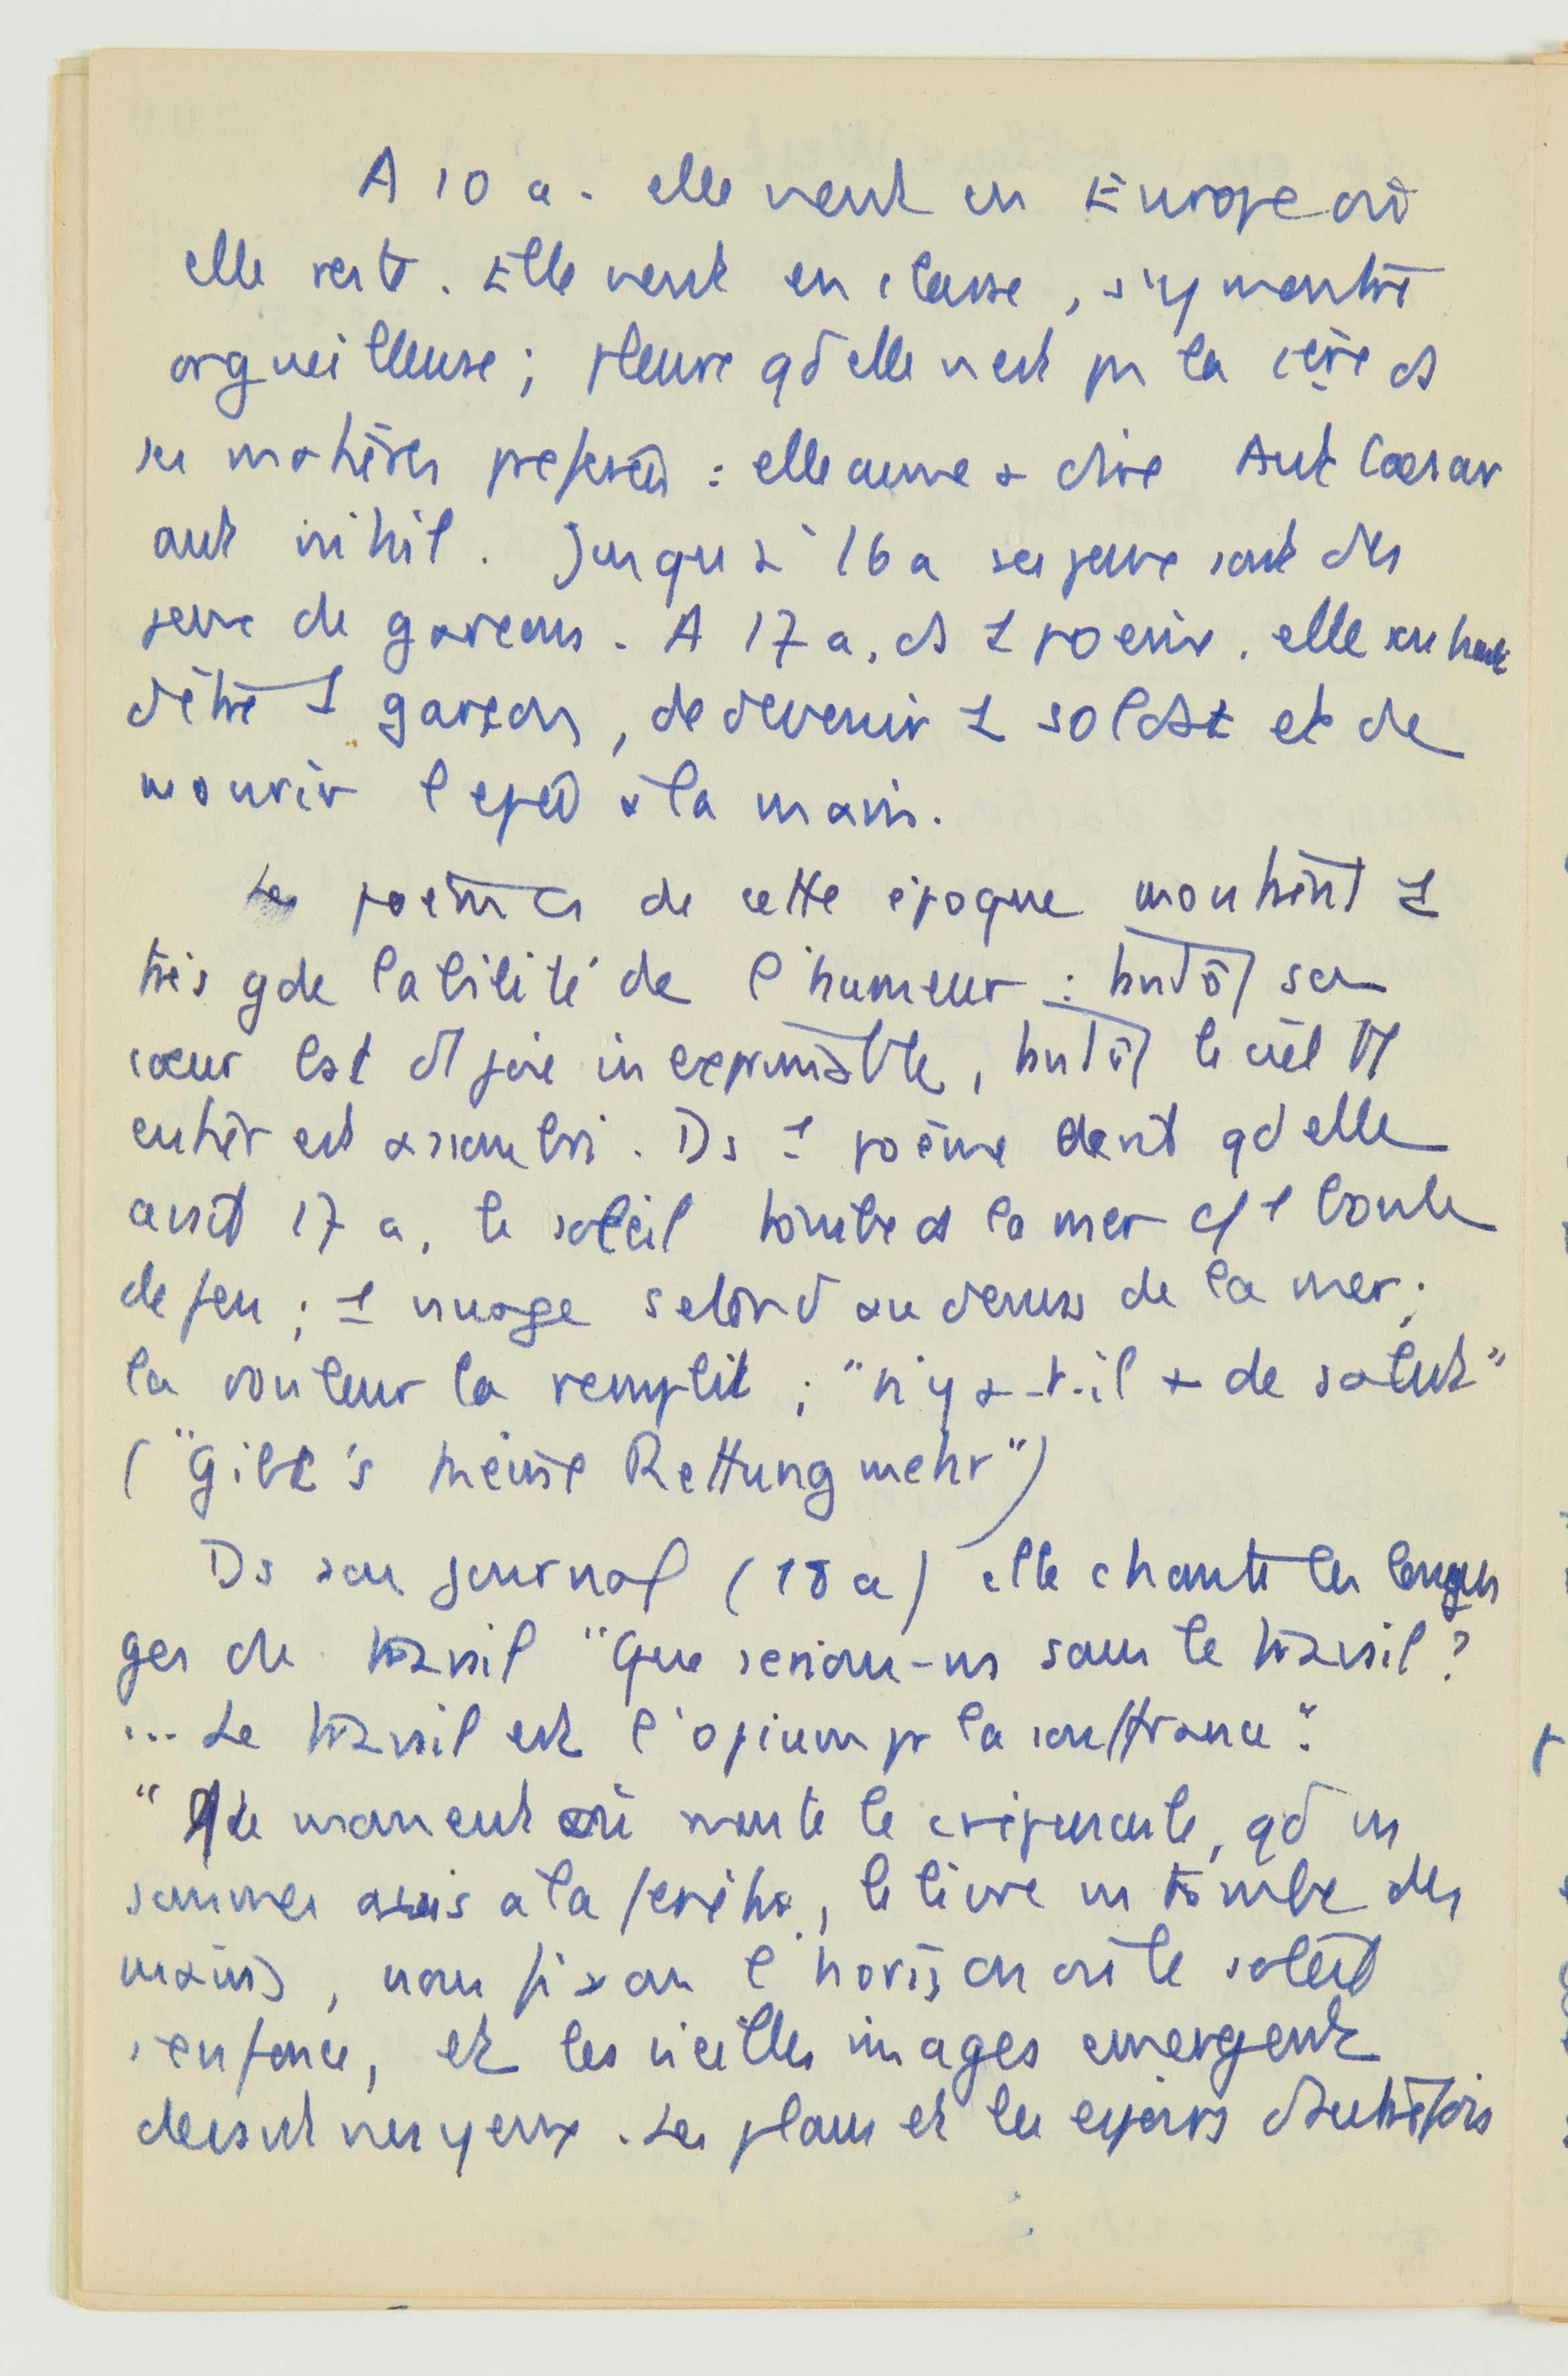 A 10 a. elle vient en Europe où
elle reste. Elle vient en classe, s'y montre
orgueilleuse; pleure qd elle n'est pas la 1ère ds
ses matières préférées : elle aime à dire Aut Caesar
aut nihil. Jusqu'à 16 a ses jeux sont des
jeux de garçons. A 17 a. ds 1 poème. elle souhaite
d'être 1 garçon, de devenir 1 soldat et de
mourir l'épée à la main.
Les poèmes de cette époque montrent 1
très gde labilité de l'humeur : tantôt son
cœur est de joie inexprimable, tantôt le ciel tt
entier est assombri. Ds 1 poème écrit qd elle
avait 17 a, le soleil tombe ds la mer c/ 1 boule
de feu; 1 nuage s'étend au dessus de la mer;
la douleur la remplit ; "n'y a-t-il + de salut"
("Gibt's keine Rettung mehr")
Ds son journal (18 a) elle chante les louan
ges du travail "Que serions-ns sans le travail?
... Le travail est l'opium pr la souffrance".
" Au moment où monte le crépuscule, qd ns
sommes assis à la fenêtre, le livre ns tombe des
mains, nous fixons l'horizon où le soleil
s'enfonce, et les vieilles images émergent
devant nos yeux. Les plans et les espoirs d'autrefois